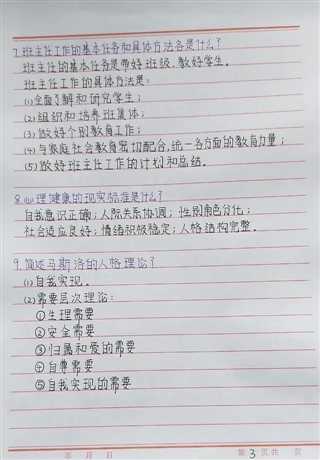 7.班主任工作的基本任务和具体方法各是什么?
班主任的基本任务是带好班级、教好学生。
班主任工作的具体方法是:
(1)全面了解和研究学生;
(2)组织和培养班集体;
(3)做好个别教育工作;
(4)与家庭社会教育密切配合,统一各方面的教育力量;
(5)做好班主任工作的计划和总结。
8.心理健康的现实标准是什么?
自我意识正确;人际关系协调;性别角色分化;
社会适应良好;情绪积极稳定;人格结构完整。
9.简述马斯洛的人格理论?
(1)自我实现。
(2)需要层次理论:
①生理需要
②安全需要
③归属和爱的需要
④自尊需要
⑤自我实现的需要
年 月 日 第 3 页共 页